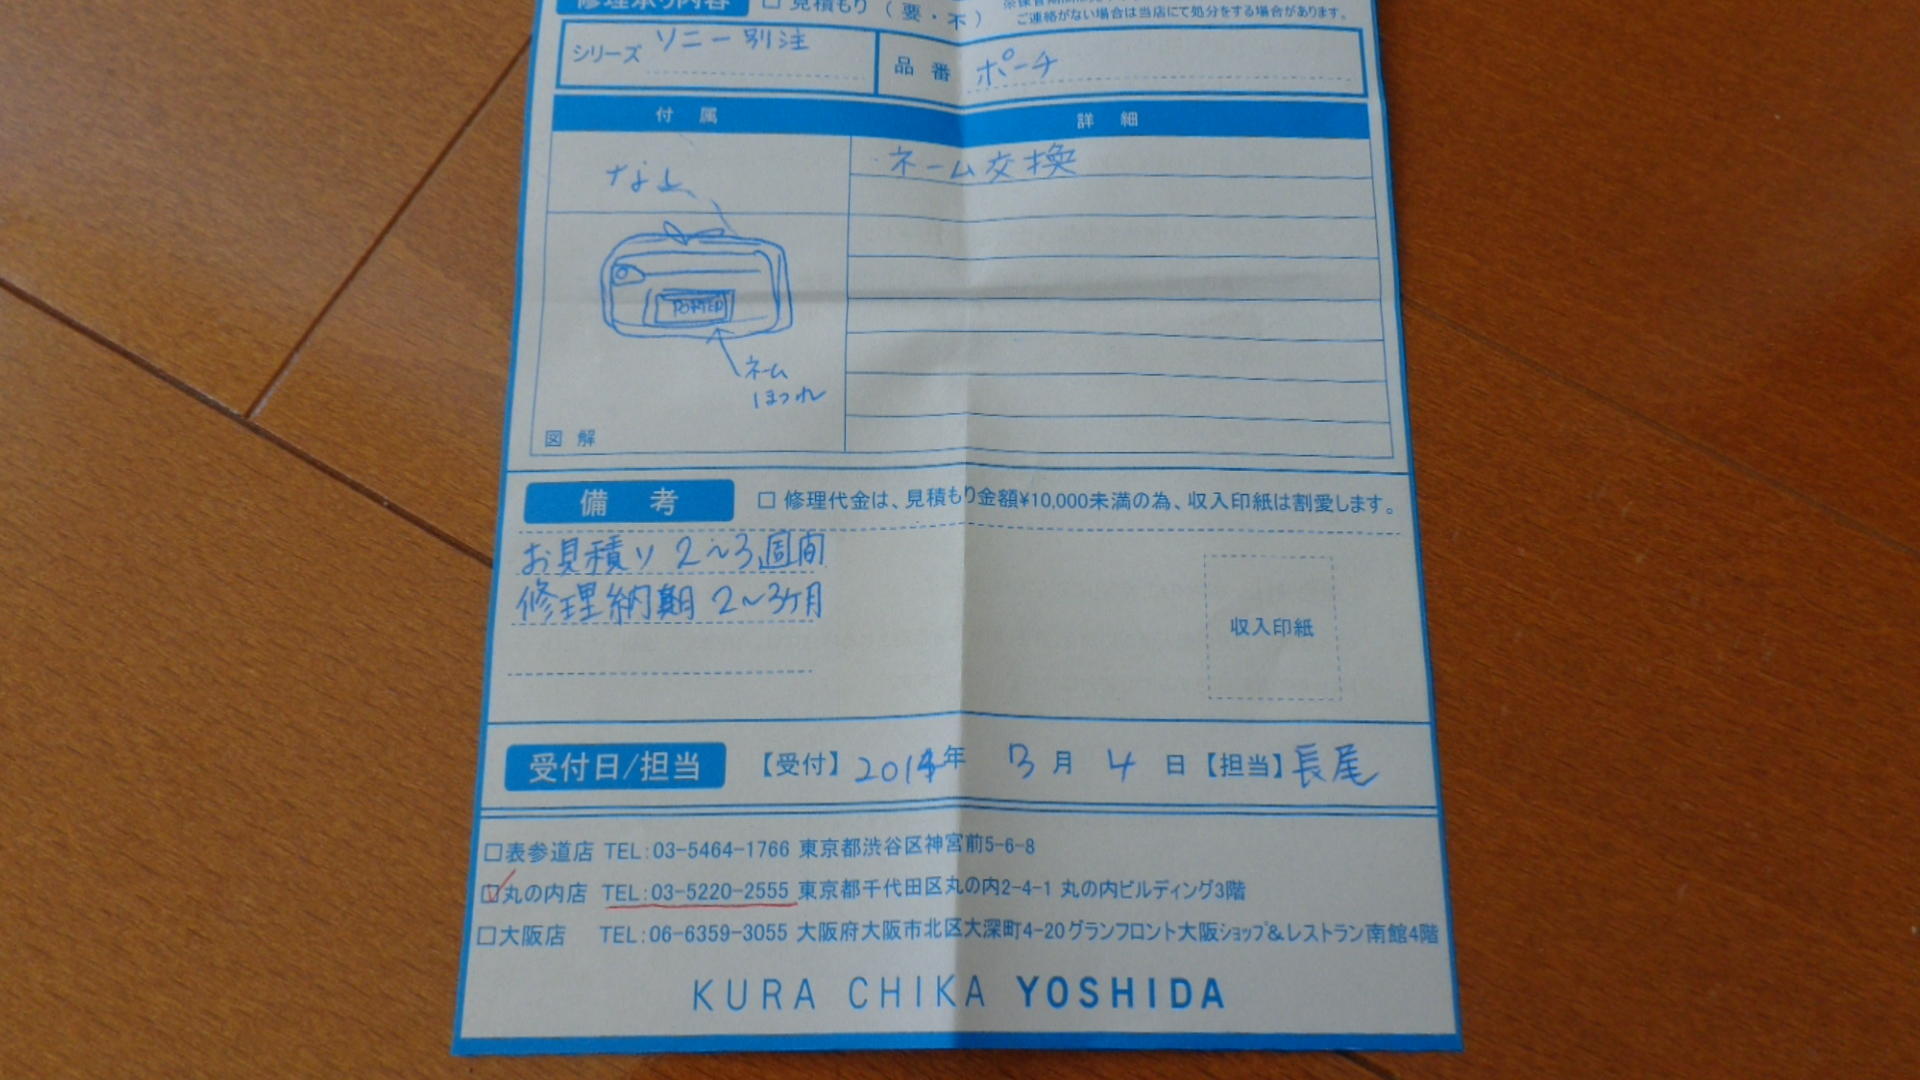 修理承り内容 □ 見積もり（要・不）
ご連絡がない場合は当店にて処分をする場合があります。
シリーズ ソニー別注 品番 ポーチ
付属 詳細
なし ・ネーム交換
PORTER
ネーム
ほつれ
図解
備考 □ 修理代金は、見積もり金額¥10,000未満の為、収入印紙は割愛します。
お見積り 2〜3週間
修理納期 2〜3ヶ月
収入印紙
受付日/担当 【受付】2014年 3月 4日【担当】長尾
□表参道店 TEL:03-5464-1766 東京都渋谷区神宮前5-6-8
☑丸の内店 TEL:03-5220-2555 東京都千代田区丸の内2-4-1 丸の内ビルディング3階
□大阪店 TEL:06-6359-3055 大阪府大阪市北区大深町4-20グランフロント大阪ショップ&レストラン南館4階
KURA CHIKA YOSHIDA